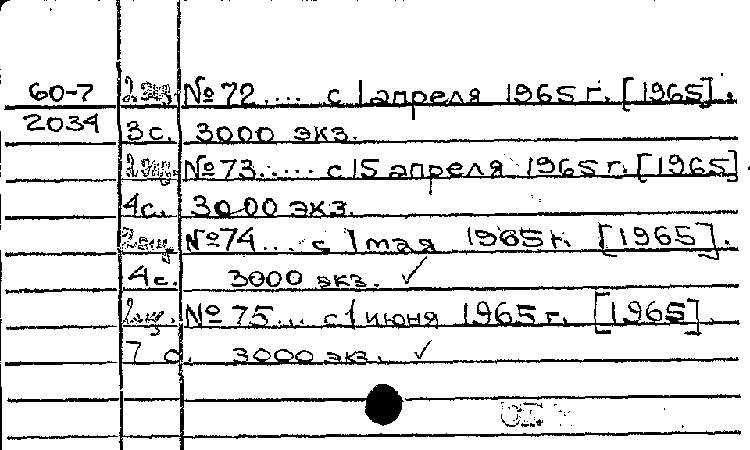 60-7 №72.... с 1 апреля 1965 г. [1965].
2034 3 с. 3000 экз.
№73..... с 15 апреля 1965 г. [1965]
4 с. 3000 экз.
№74... с 1 мая 1965 г. [1965].
4 с. 3000 экз. ✓
№ 75... с 1 июня 1965 г. [1965].
7 с. 3000 экз. ✓